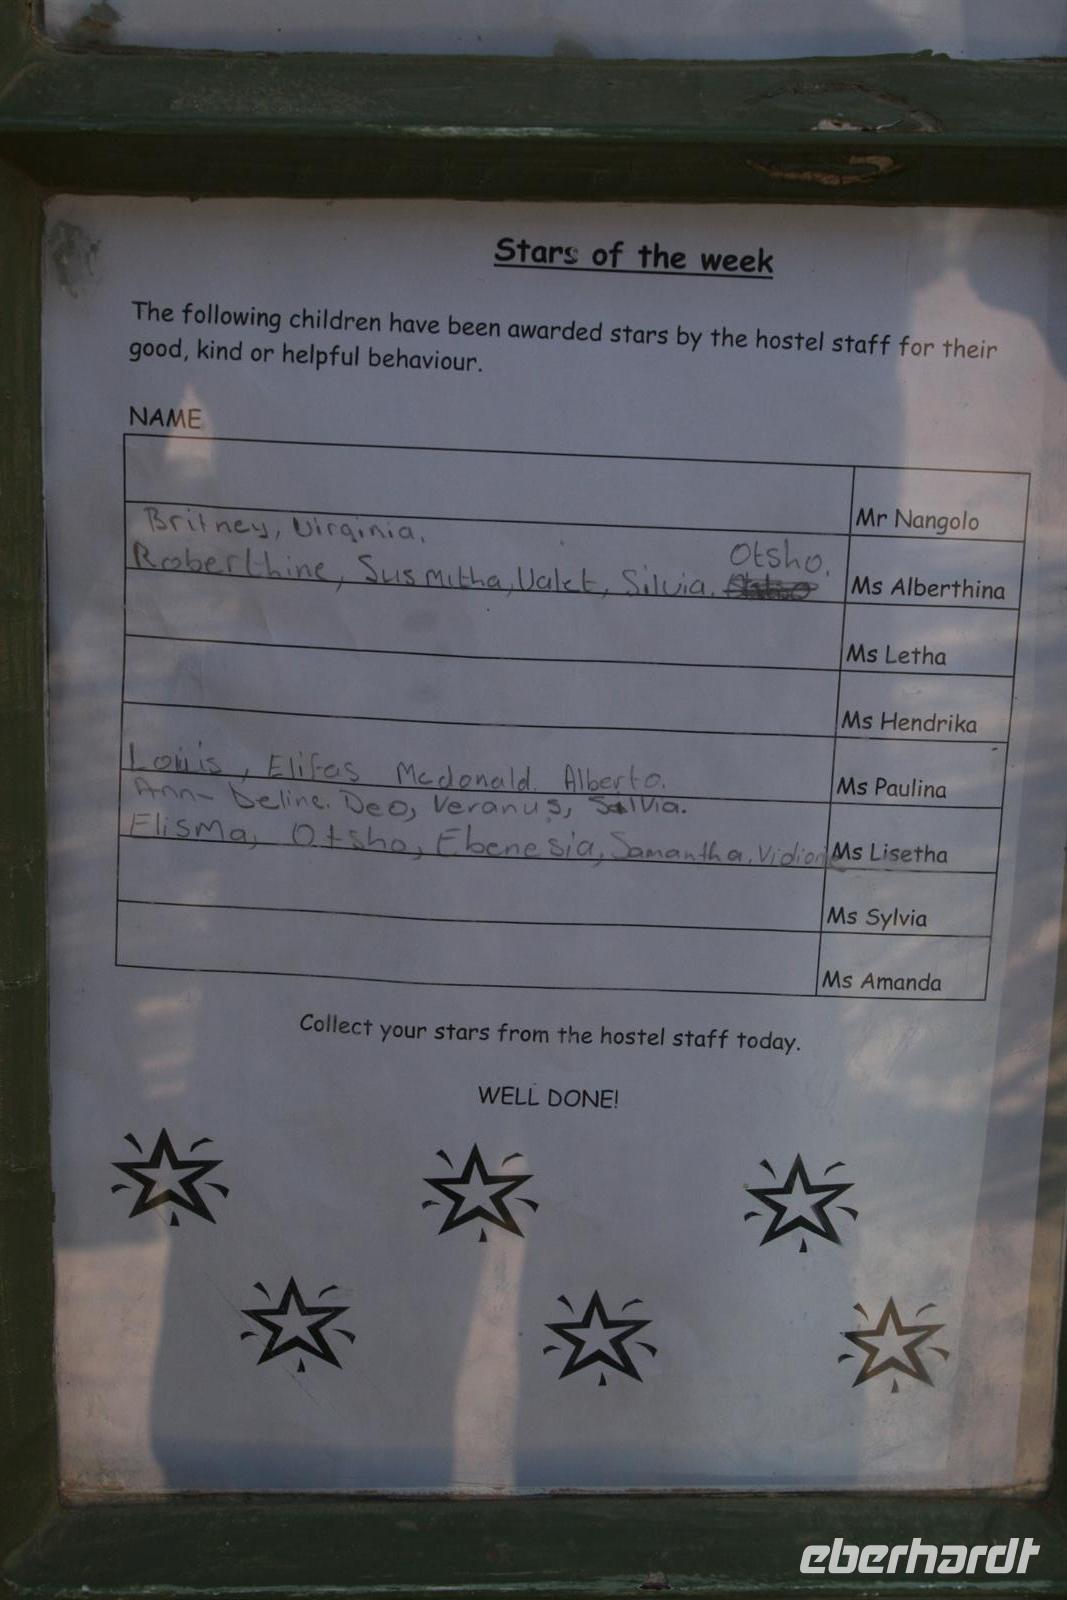 Stars of the week
The following children have been awarded stars by the hostel staff for their
good, kind or helpful behaviour.
NAME
Mr Nangolo
Britney, Virginia.
Otsho.
Roberthine, Susmitha, Valet, Silvia.
Ms Alberthina
Ms Letha
Ms Hendrika
Louis, Elifas Mcdonald. Alberto.
Ms Paulina
Ann- beline. Deo, Veranus, Salvia.
Elisma, Otsho, Ebenesia, Samantha.
Ms Lisetha
Ms Sylvia
Ms Amanda
Collect your stars from the hostel staff today.
WELL DONE!
eberhardt